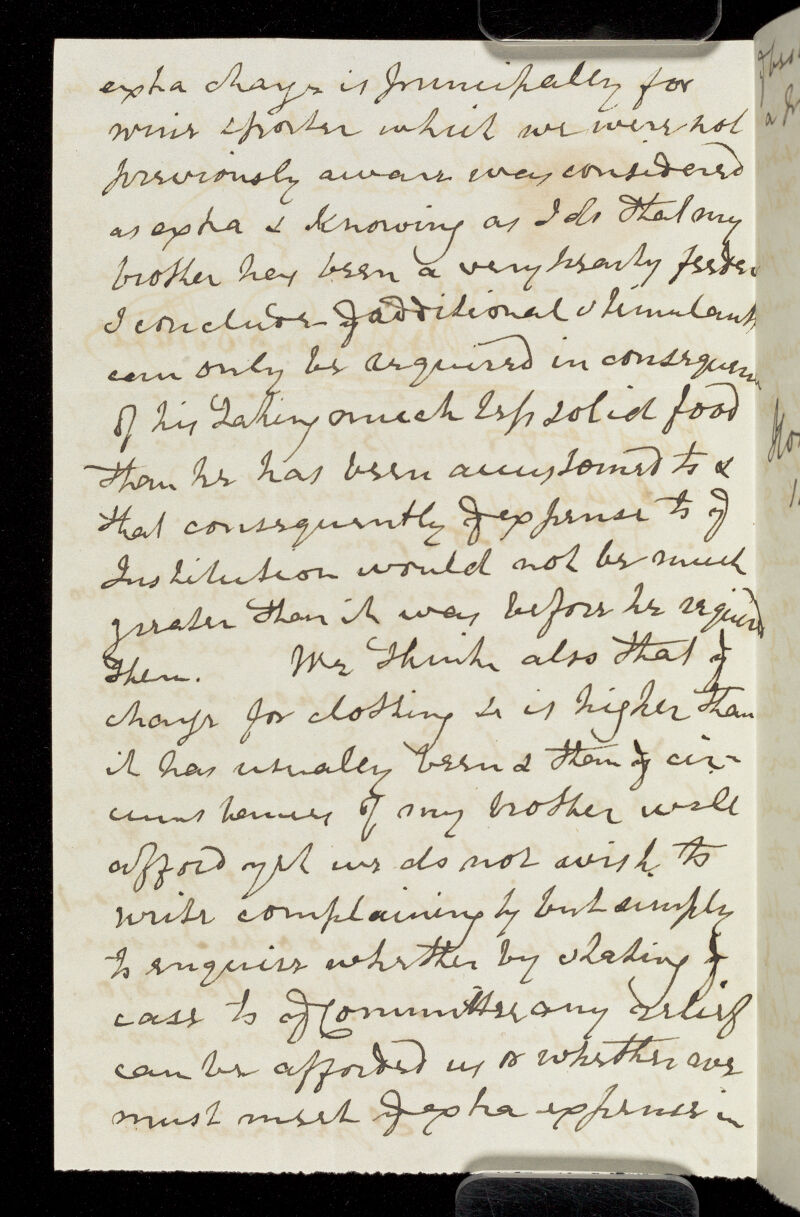 extra charge is principally for
wine & porter which we were not
previously aware was considered
as extra & knowing as I do that my
brother has been a very hearty feeder
I conclude ye additional stimulants
can only be required in consequence
of his taking much less solid food
than he has been accustomed to &
that consequently ye expense to ye
Institution would not be much
greater than it was before he required
them. We think also that ye
charge for clothing &c is higher than
it has usually been & than ye cir-
cumstances of my brother will
afford yet we do not wish to
write complainingly but simply
to enquire whether by stating ye
case to ye Committee any relief
can be afforded us or whether we
must meet ye extra expense in